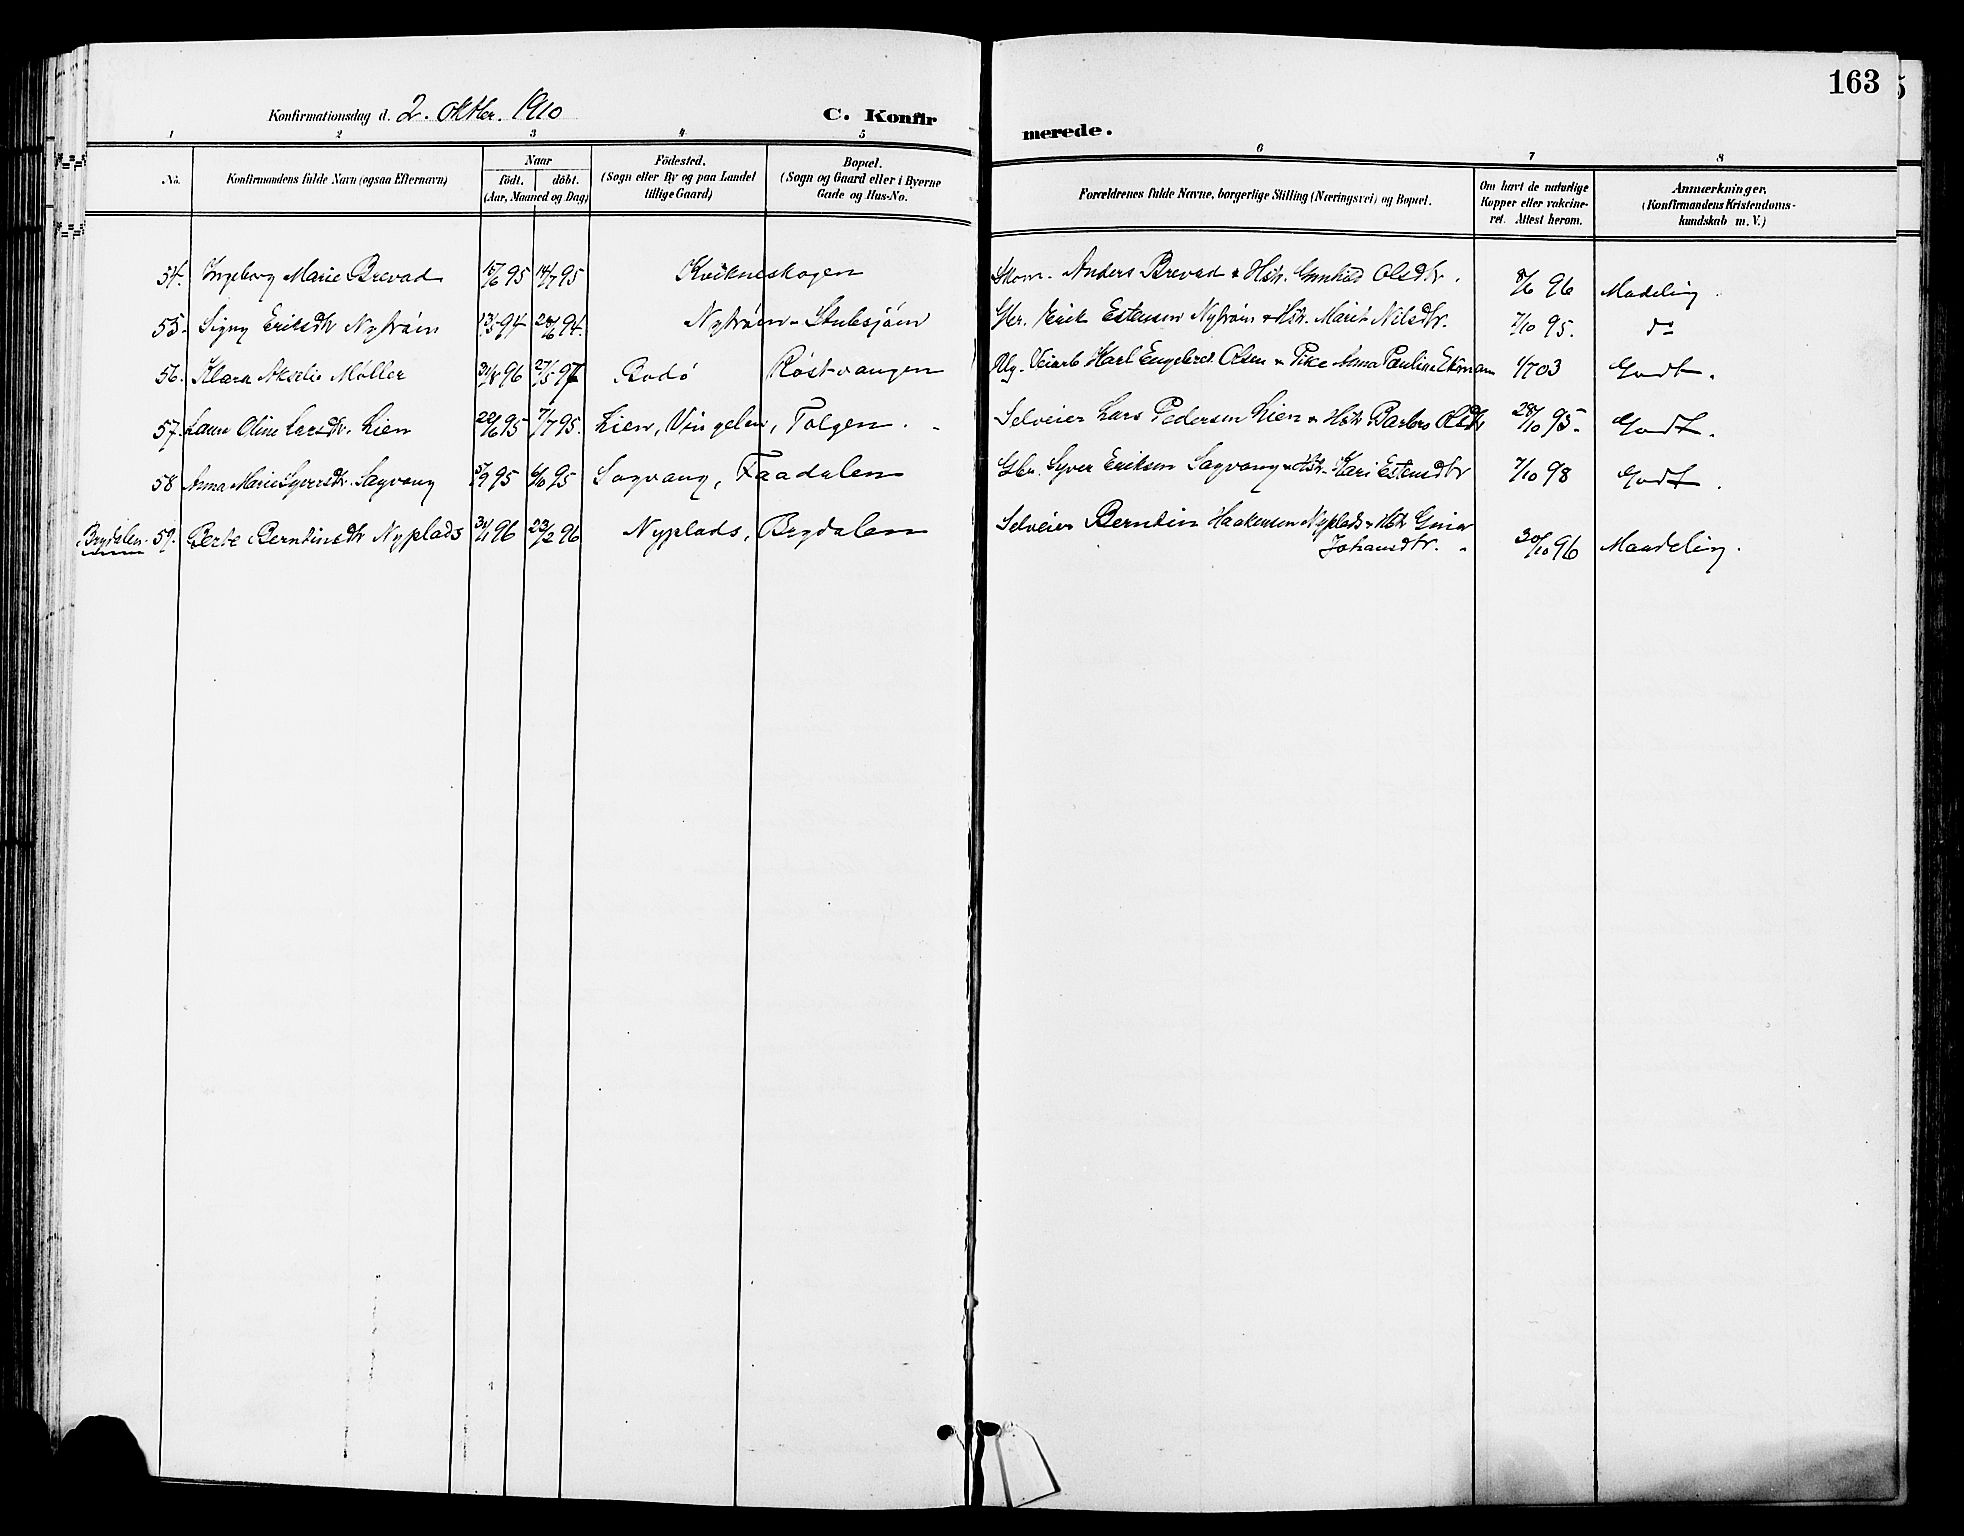 163
Konfirmationsdag d. 2. Oktbr. 1910
C. Konfir
merede.
1 2 3 4 5
6 7 8
No.
Konfirmandens fulde Navn (ogsaa Efternavn)
Naar
født. døbt.
(Aar, Maaned og Dag)
Fødested.
(Sogn eller By og paa Landet
tillige Gaard)
Bopæl.
(Sogn og Gaard eller i Byerne
Gade og Hus-No.
Forældrenes fulde Navne, borgerlige Stilling (Næringsvei) og Bopæl.
Om havt de naturlige
Kopper eller vakcine-
ret. Attest herom.
Anmærkninger.
(Konfirmandens Kristendoms-
kundskab m. V.)
54. Ingeborg Marie Brevad 15/6 95 14/7 95 Kvikneskogen Anders Brevad & Hst. Gunhild Olsdtr. 8/6 96 Madelig.
55. Signy Eriksdtr Nystrøm 13/5 94 24/6 94. Nystrøm - Stubsjøen Gbr. Erik Estensen Nystrøm & Hst. Marit Nilsdtr. 7/10 95. do
56. Klara Akselie Møller 31/8 96 27/5 97 Bodø Røstvangen Ug. Veiarb Karl Engebret Olsen & Pike Anna Pauline Ekman 1/7 03 Godt.
57. Laura Oline Larsdtr. Lien 22/6 95 7/7 95. Lien, Vingelen, Tolgen. Selveier Lars Pedersen Lien & Hst. Barbro Olsdtr 28/10 95. Godt.
58 Anna Marie Syversdtr. Sagvang 5/9 95 6/10 95 Sagvang, Faadalen Gbr. Syver Eriksen Sagvang & Hst. Kari Estensdtr 7/10 98 Godt.
Brydalen. 59. Berte Berntinsdtr Nyplads 31/1 96 23/2 96 Nyplads, Brydalen Selveier Berntin Haakensen Nyplads & Hst Gina
Johansdtr. 30/10 96 Maadelig.